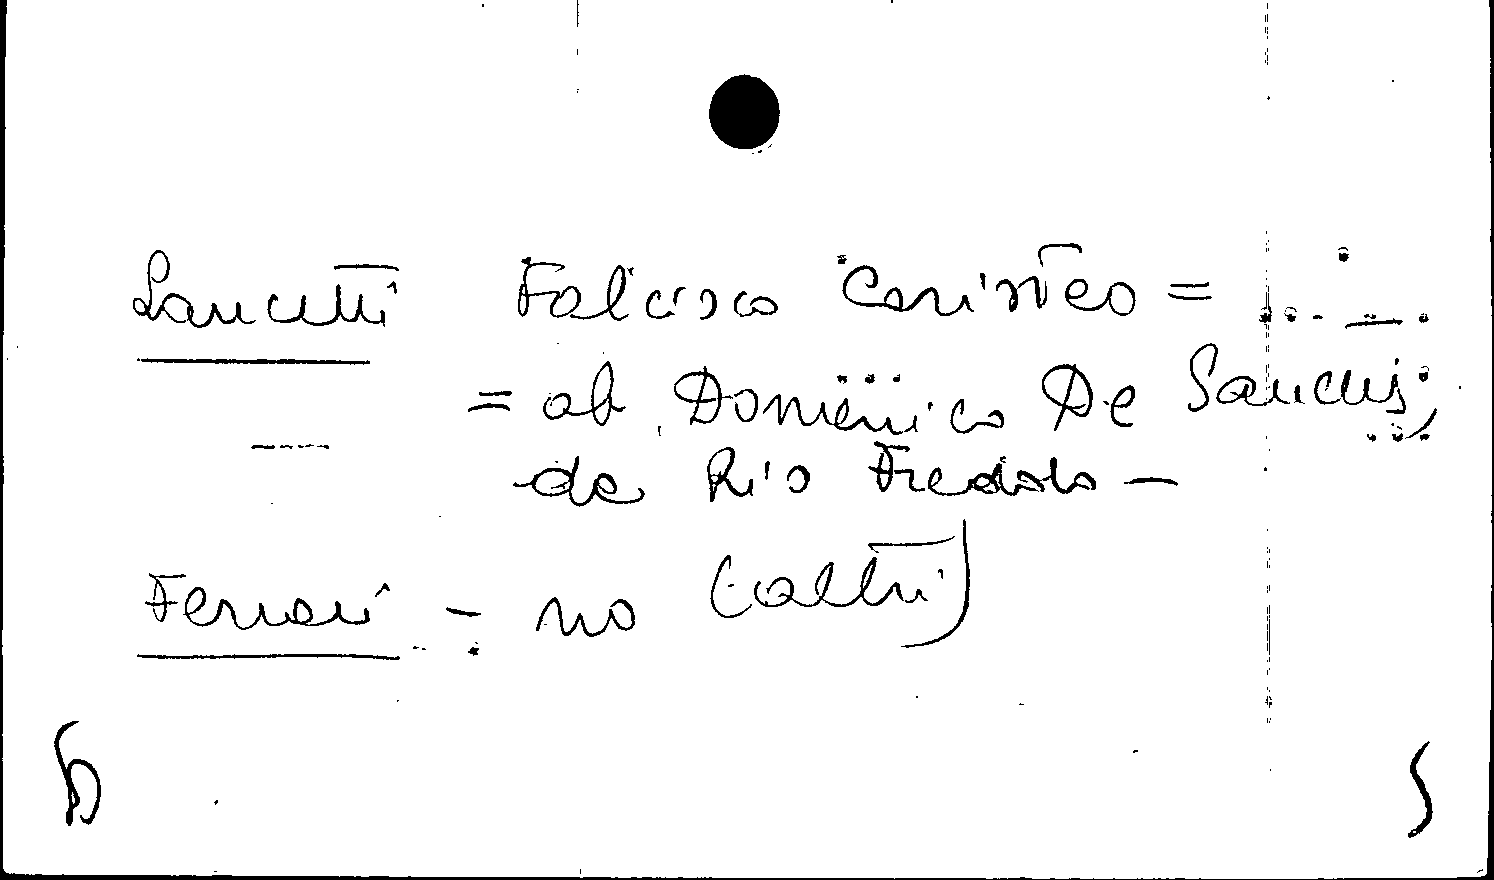 Lancetti Falcisco Carinteo =
= ab. Domenico De Sanctis,
da Rio Freddo -
Ferrari - no (altri)